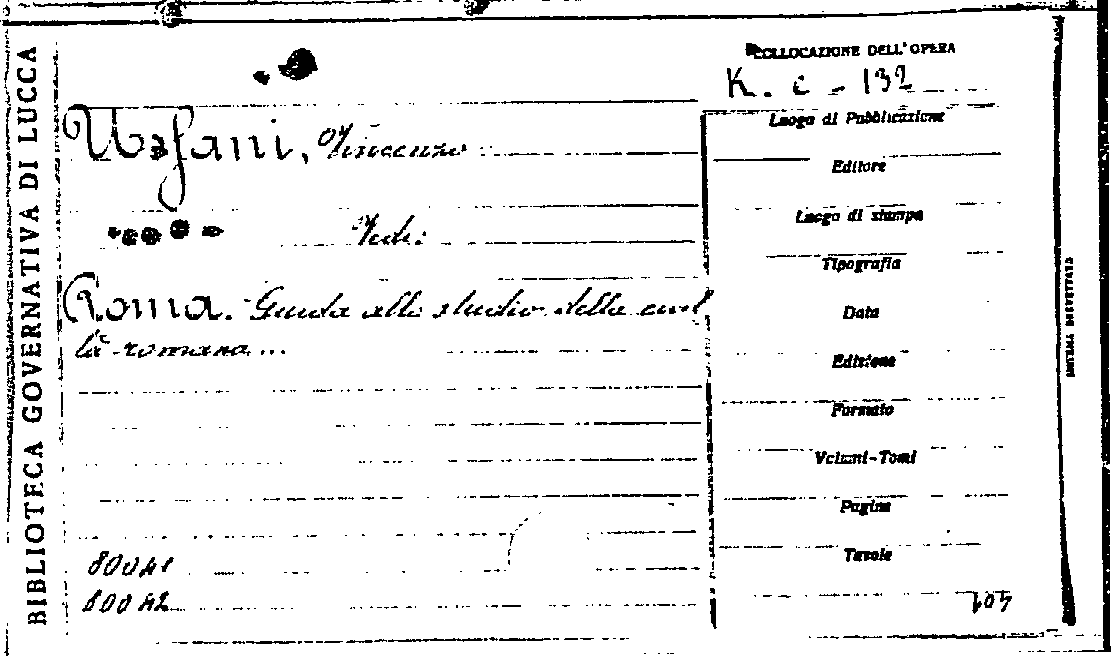 BIBLIOTECA GOVERNATIVA DI LUCCA
COLLOCAZIONE DELL'OPERA
K. c - 132
Ussani, Vincenzo
Vedi:
Roma. Guida allo studio della civil
tà romana...
80041
80042
Luogo di Pubblicazione
Editore
Luogo di stampa
Tipografia
Data
Edizione
Formato
Volumi-Tomi
Pagine
Tavole
SISTEMA BREVETTATO